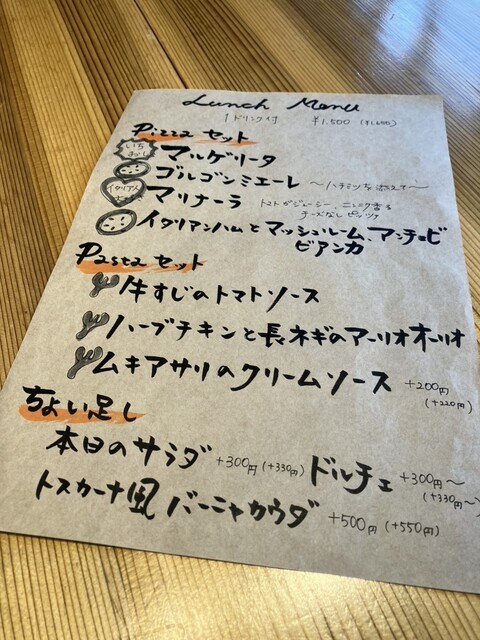 Lunch Menu
1ドリンク付 ¥1,500 (¥1,650)
Pizzaセット
いちおし マルゲリータ
ゴルゴンミエーレ 〜ハチミツを添えて〜
イタリア人 マリナーラ トマトがジューシー、ニンニク香る
チーズなしピッツァ
イタリアンハムとマッシュルーム、アンチョビ
ビアンカ
Pastaセット
牛すじのトマトソース
ハーブチキンと長ネギのアーリオオーリオ
ムキアサリのクリームソース +200円
(+220円)
ちょい足し
本日のサラダ +300円 (+330円) ドルチェ +300円〜
(+330円〜)
トスカーナ風バーニャカウダ +500円 (+550円)